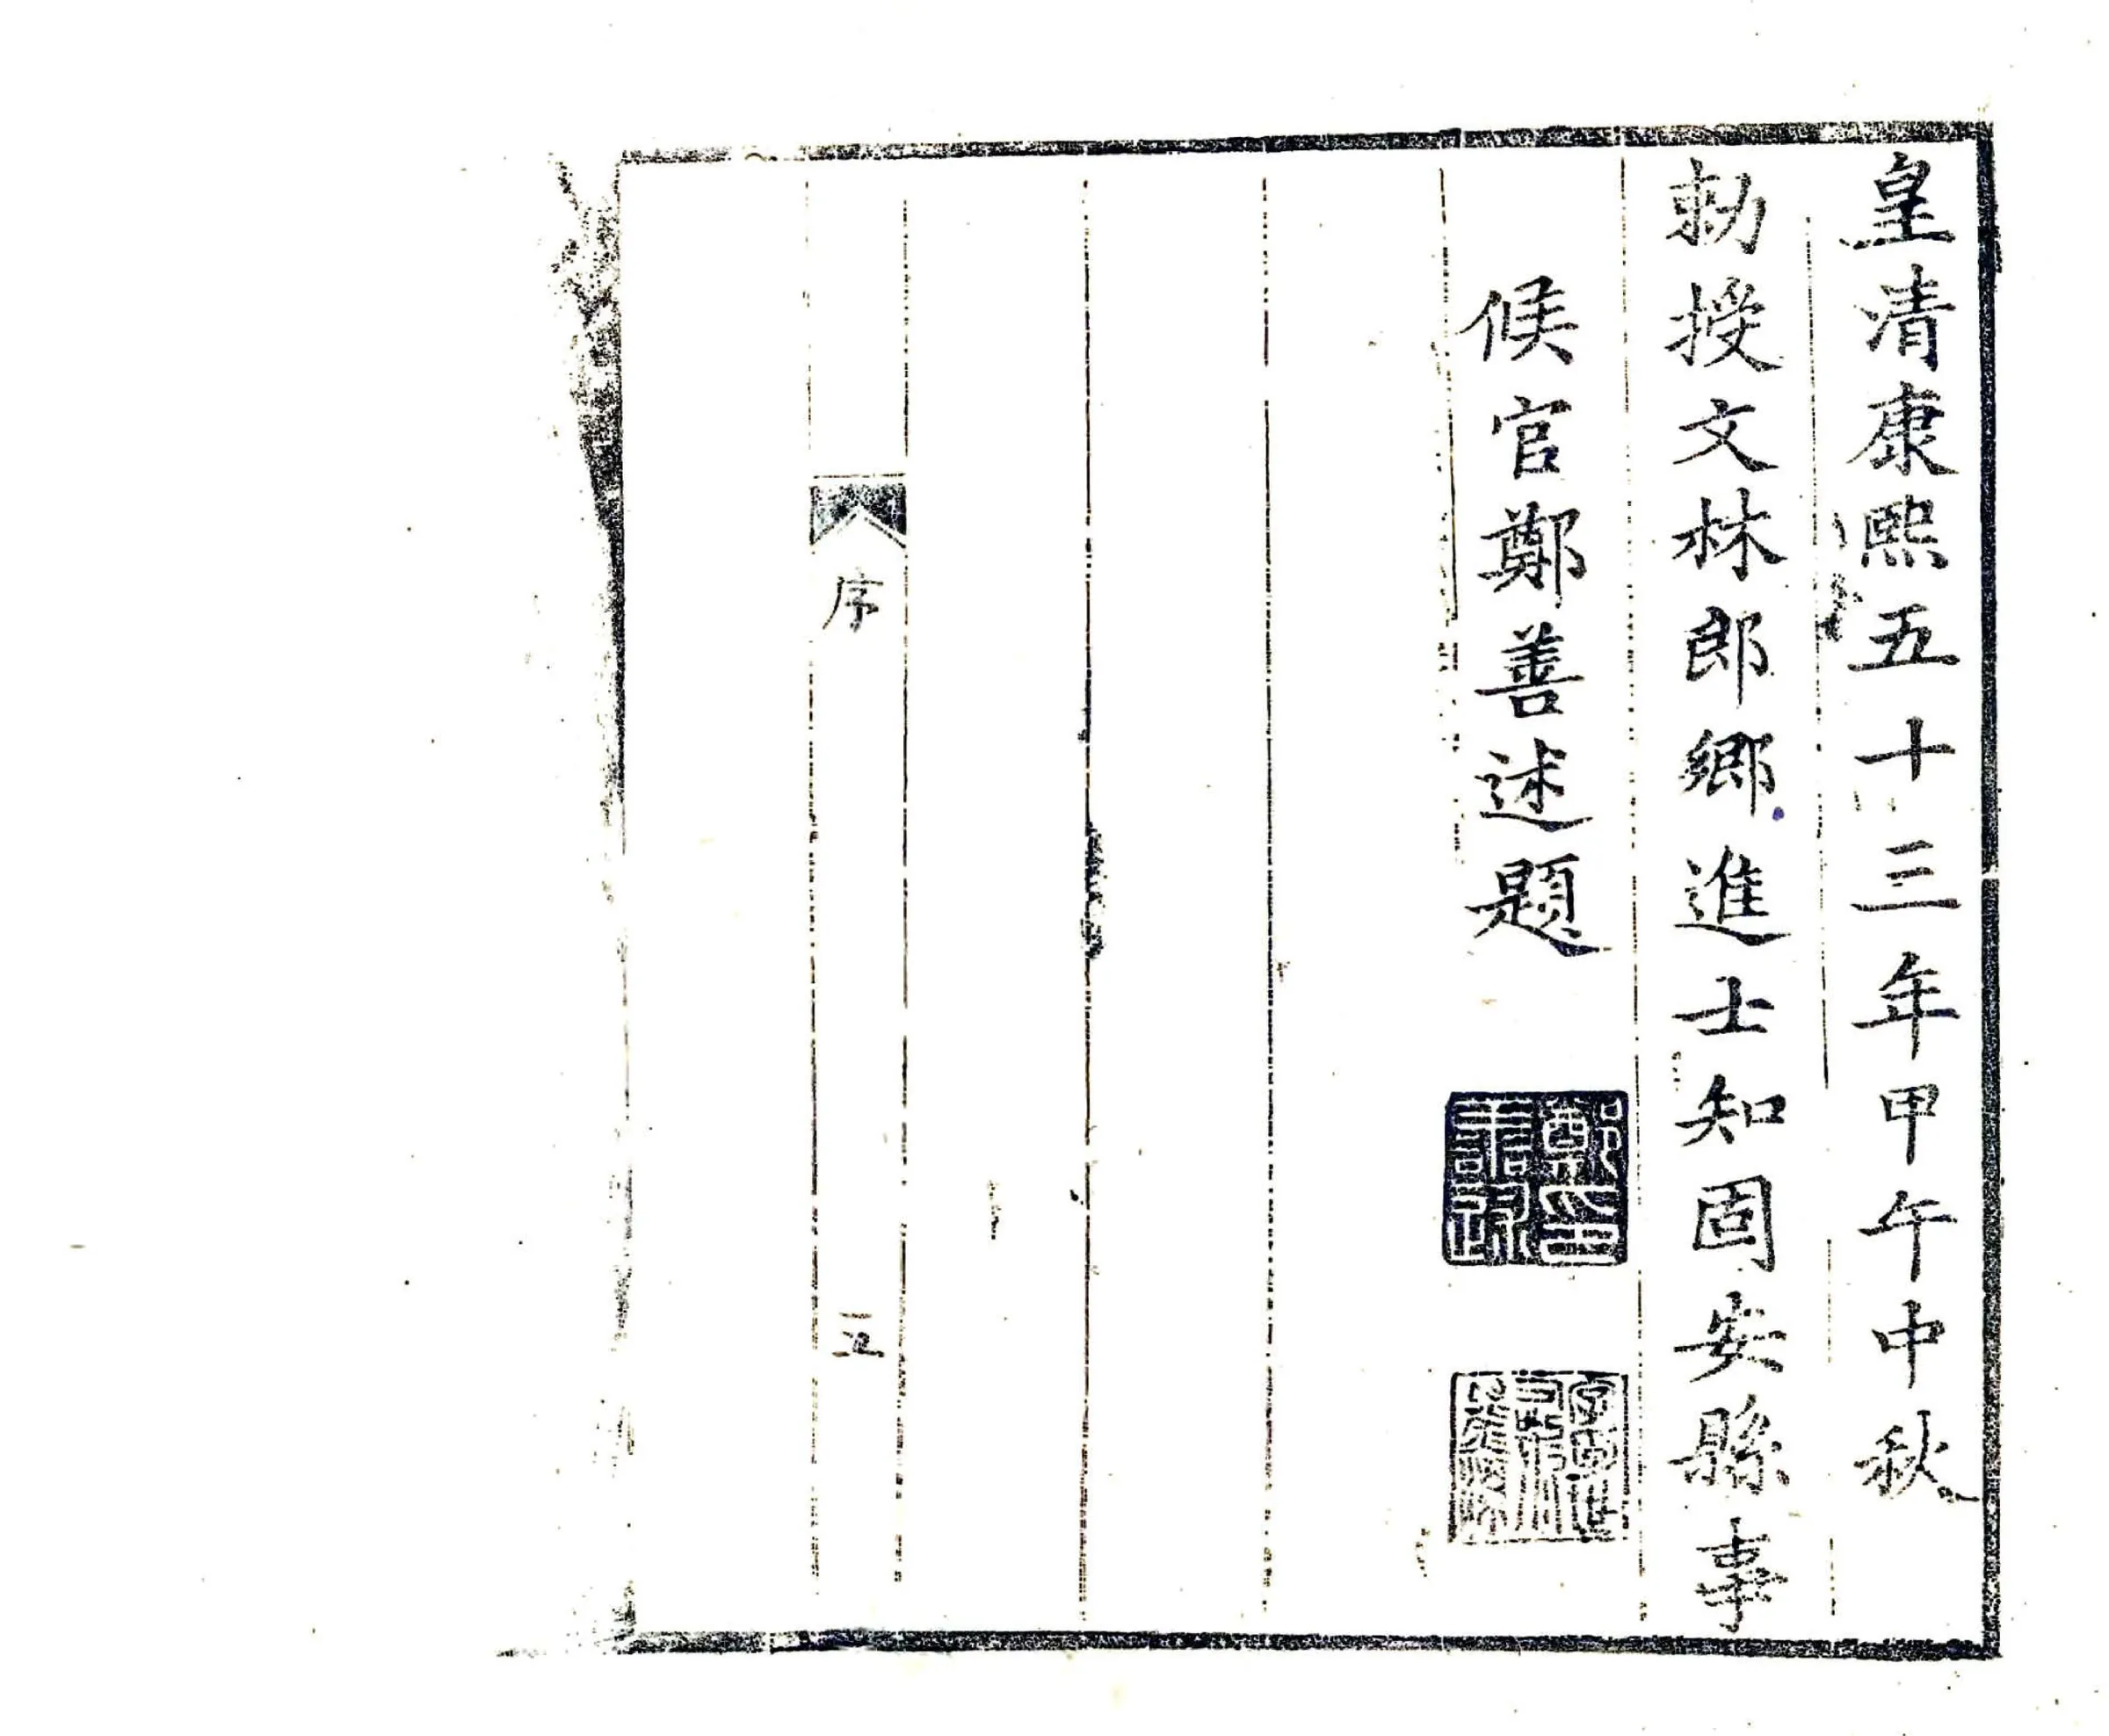 皇清康熙五十三年甲午中秋
勅授文林郎鄉進士知固安縣事
候官鄭善述題
鄭印
善述
序
五